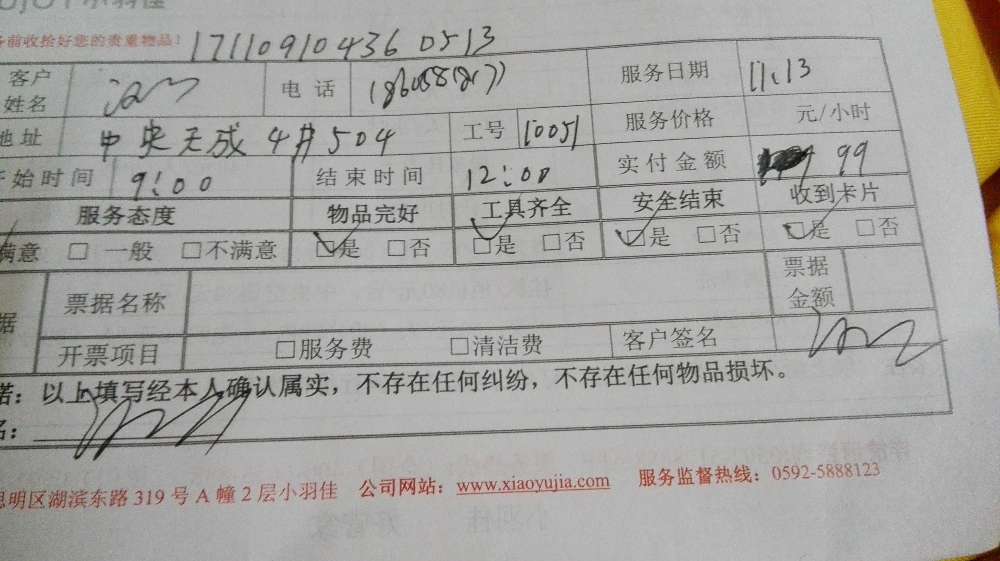 小羽佳
前收拾好您的贵重物品! 17110910436 0513
客户姓名 电话 服务日期 11.13
地址 中央天成 4#504 工号 10051 服务价格 元/小时
开始时间 9:00 结束时间 12:00 实付金额 99
服务态度 物品完好 工具齐全 安全结束 收到卡片
满意 □ 一般 □不满意 □是 □否 □是 □否 □是 □否 □是 □否
据 票据名称 票据金额
开票项目 □服务费 □清洁费 客户签名
诺:以上填写经本人确认属实,不存在任何纠纷,不存在任何物品损坏。
名:
思明区湖滨东路 319 号 A 幢 2 层小羽佳 公司网站:www.xiaoyujia.com 服务监督热线:0592-5888123